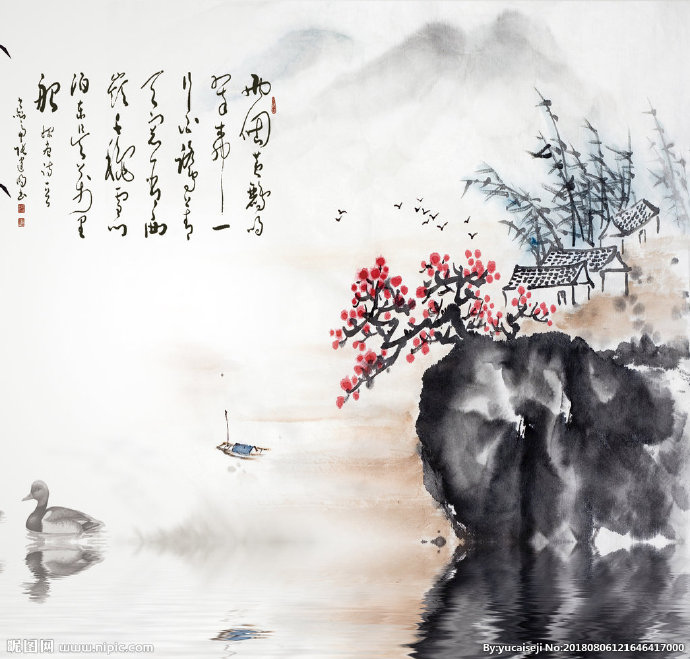 两個黄鹂鸣
翠柳一
行白鹭上青
天窗含西
岭千秋雪门
泊东吴万里
船 杜甫诗一首
昵图网 www.nipic.com
By:yucaiseji No:20180806121646417000